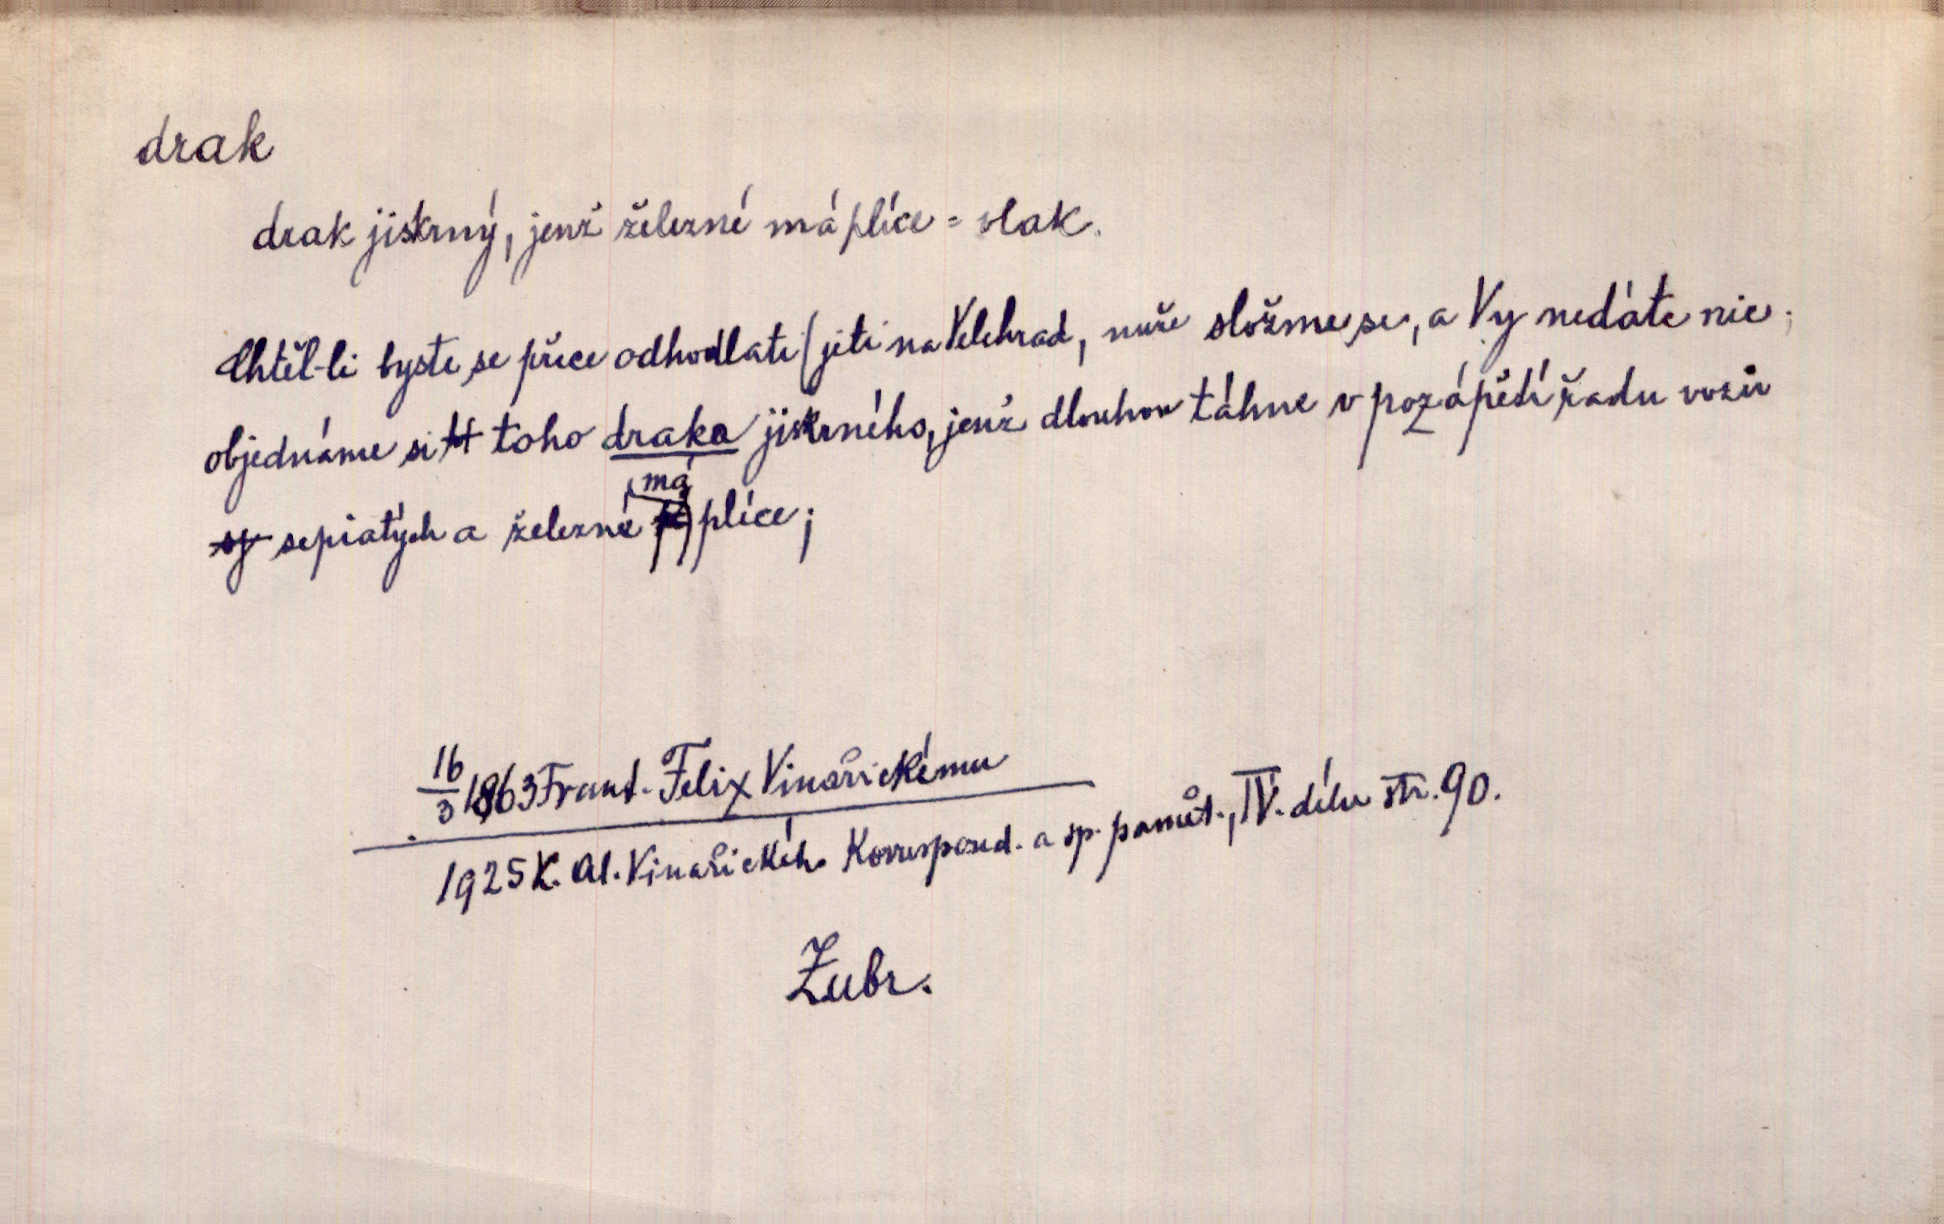 drak
drak jiskrný, jenž železné má plíce = vlak.
Chtěl-li byste se přece odhodlati (jeti na Velehrad, nuže složme se, a Vy nedáte nic;
objednáme si toho draka jiskrného, jenž dlouhou táhne v pozápětí řadu vozů
sepiatých a železné má plíce;
16/3 1863 Frant. Felix Vinařickému
1925 K. Al. Vinařického Korrespond. a sp. pamět., IV. dílu str. 90.
Zubr.